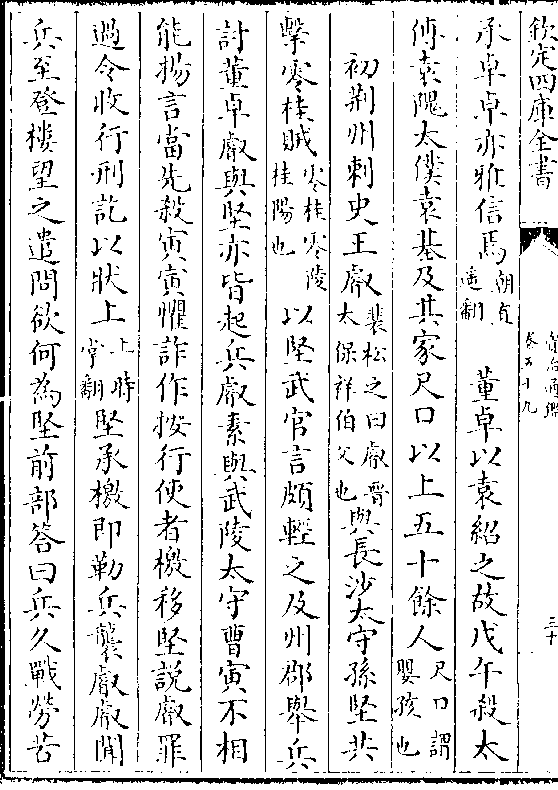 欽定四庫全書
資治通鑑
卷五十九
三十
承卓卓亦雅信焉朝直遥翻 董卓以袁紹之故戊午殺太
傅袁隗太僕袁基及其家尺口以上五十餘人尺口謂嬰孩也
初荆州刺史王叡裴松之曰叡晉太保祥伯父也與長沙太守孫堅共
擊零桂賊零桂零陵桂陽也以堅武官言頗輕之及州郡舉兵
討董卓叡與堅亦皆起兵叡素與武陵太守曹寅不相
能揚言當先殺寅寅懼詐作按行使者檄移堅說叡罪
過令收行刑訖以狀上上時掌翻堅承檄即勒兵襲叡叡聞
兵至登樓望之遣問欲何為堅前部答曰兵久戰勞苦